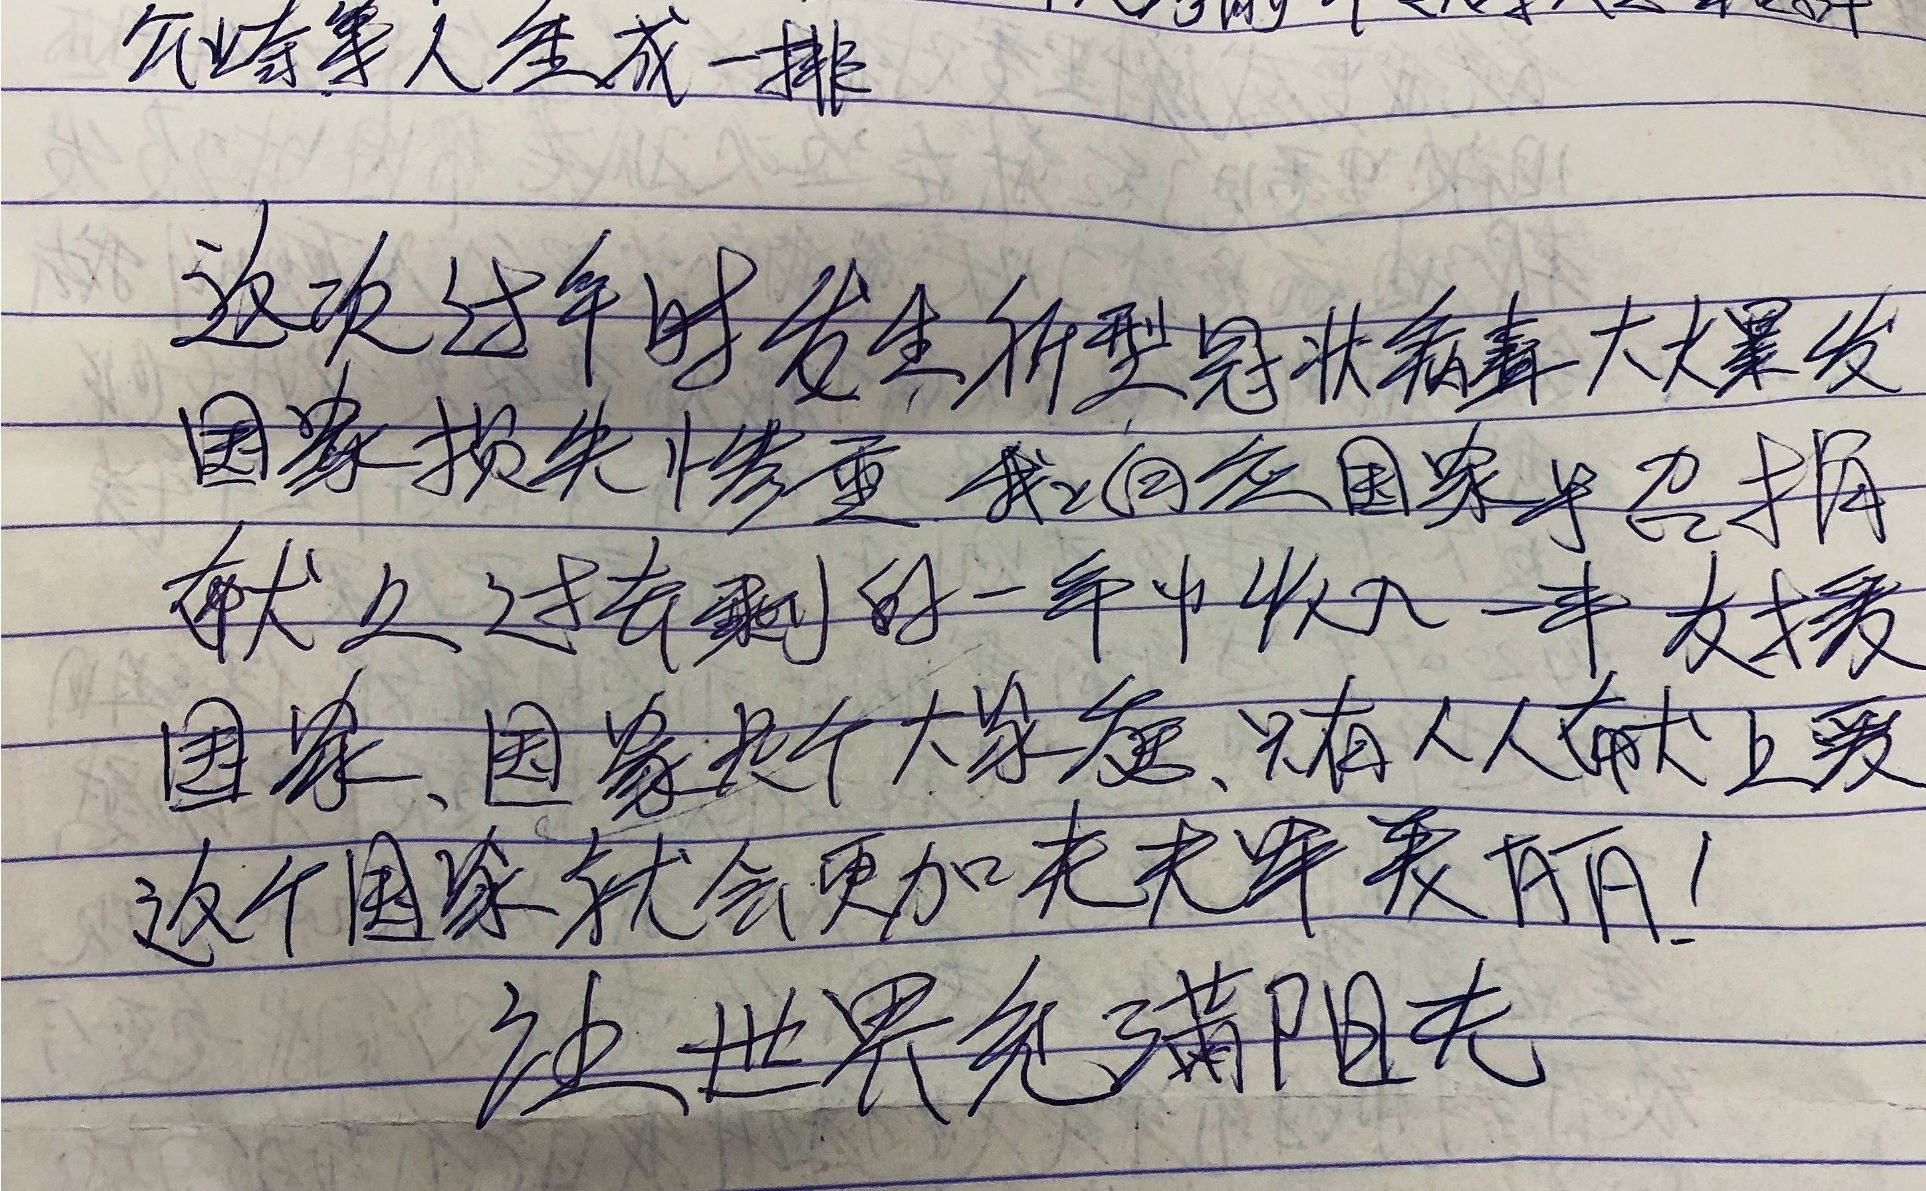 等人生成一排
这次过年时发生新型冠状病毒大爆发
国家损失惨重 我们应国家号召捐
献上过去剩的一年中收入一半支援
国家、国家是个大家庭、只有人人献上爱
这个国家就会更加光光辉美丽！
让世界充满阳光